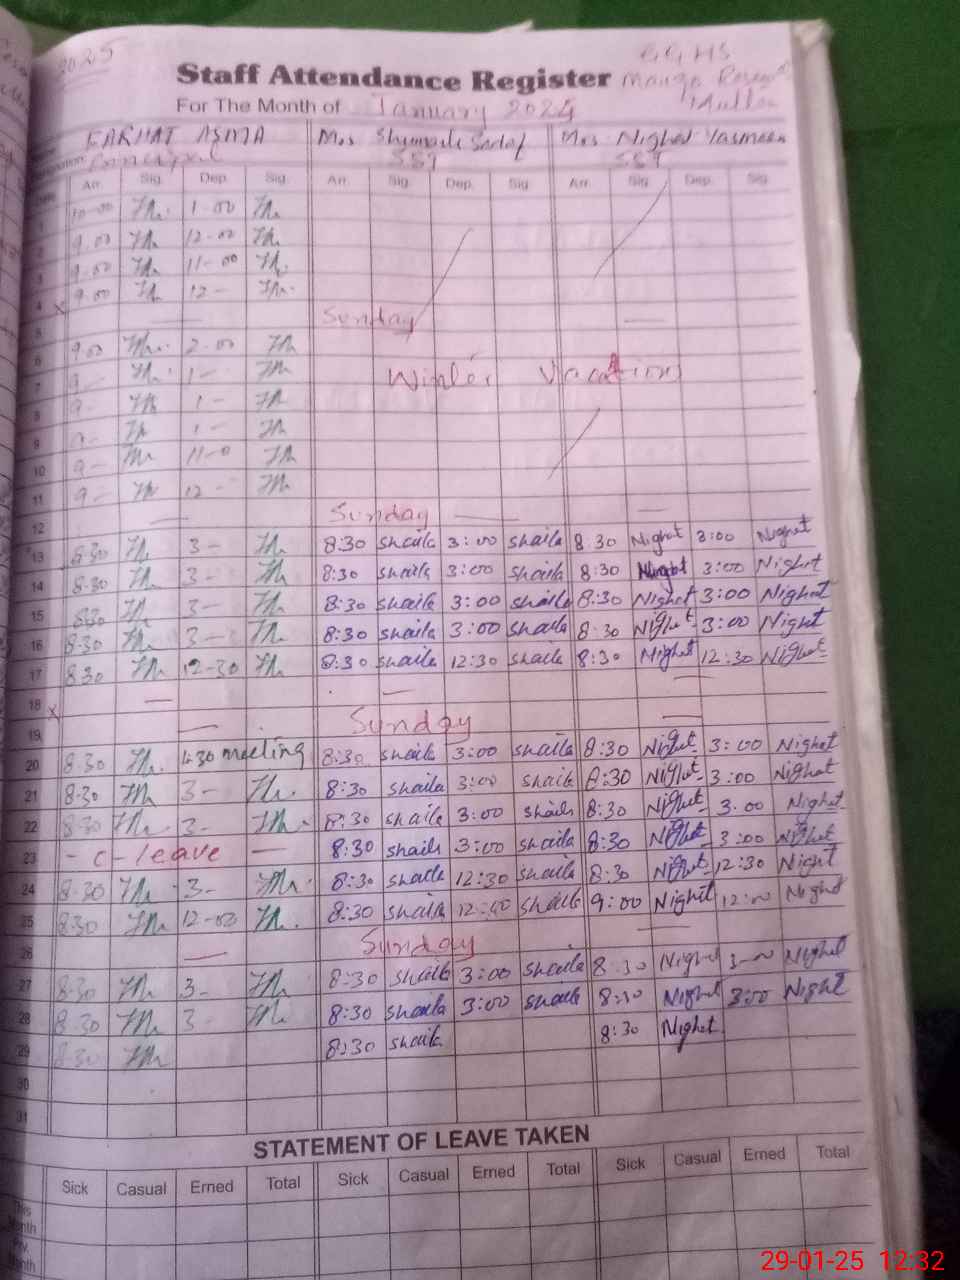 2025
GGHS
Staff Attendance Register
For The Month of January 2024
FARHAT ASMA Mrs Mrs Nighat Yasmeen
Principal SST SST
Arr. Sig. Dep. Sig. Arr. Sig. Dep. Sig. Arr. Sig. Dep. Sig.
1 10-00 1-00
2 9.00 12-00
3 9-00 11-00
4 x 9.00 12-
5 — Sunday —
6 9.00 2-00
7 9- 1- Winter Vacations
8 9- 1-
9 9- 1-
10 9- 11-0
11 9- 12-
12 — Sunday — —
13 8.30 3- 8:30 shaila 3:00 shaila 8.30 Nighat 3:00 Nighat
14 8.30 3- 8:30 shaila 3:00 shaila 8:30 Nighat 3:00 Nighat
15 8.30 3- 8:30 shaila 3:00 shaila 8:30 Nighat 3:00 Nighat
16 8.30 3- 8:30 shaila 3:00 shaila 8.30 Nighat 3:00 Nighat
17 8.30 12-30 8:30 shaila 12:30 shaila 8:30 Nighat 12:30 Nighat
18 x — — —
19 — Sunday —
20 8.30 4.30 meeting 8:30 shaila 3:00 shaila 8:30 Nighat 3:00 Nighat
21 8.30 3- 8:30 shaila 3:00 shaila 8:30 Nighat 3:00 Nighat
22 8.30 3- 8:30 shaila 3:00 shaila 8:30 Nighat 3:00 Nighat
23 - C-leave — 8:30 shaila 3:00 shaila 8:30 Nighat 3:00 Nighat
24 8.30 3- 8:30 shaila 12:30 shaila 8:30 Nighat 12:30 Nighat
25 8.30 12-00 8:30 shaila shaila 9:00 Nighat 12:00 Nighat
26 — Sunday —
27 8.30 3- 8:30 shaila 3:00 shaila 8:30 Nighat 3-00 Nighat
28 8.30 3- 8:30 shaila 3:00 shaila 8:30 Nighat 3:00 Nighat
29 8.30 8:30 shaila 8:30 Nighat
30
31
STATEMENT OF LEAVE TAKEN
Sick Casual Erned Total Sick Casual Erned Total Sick Casual Erned Total
This Month
Month
29-01-25 12:32